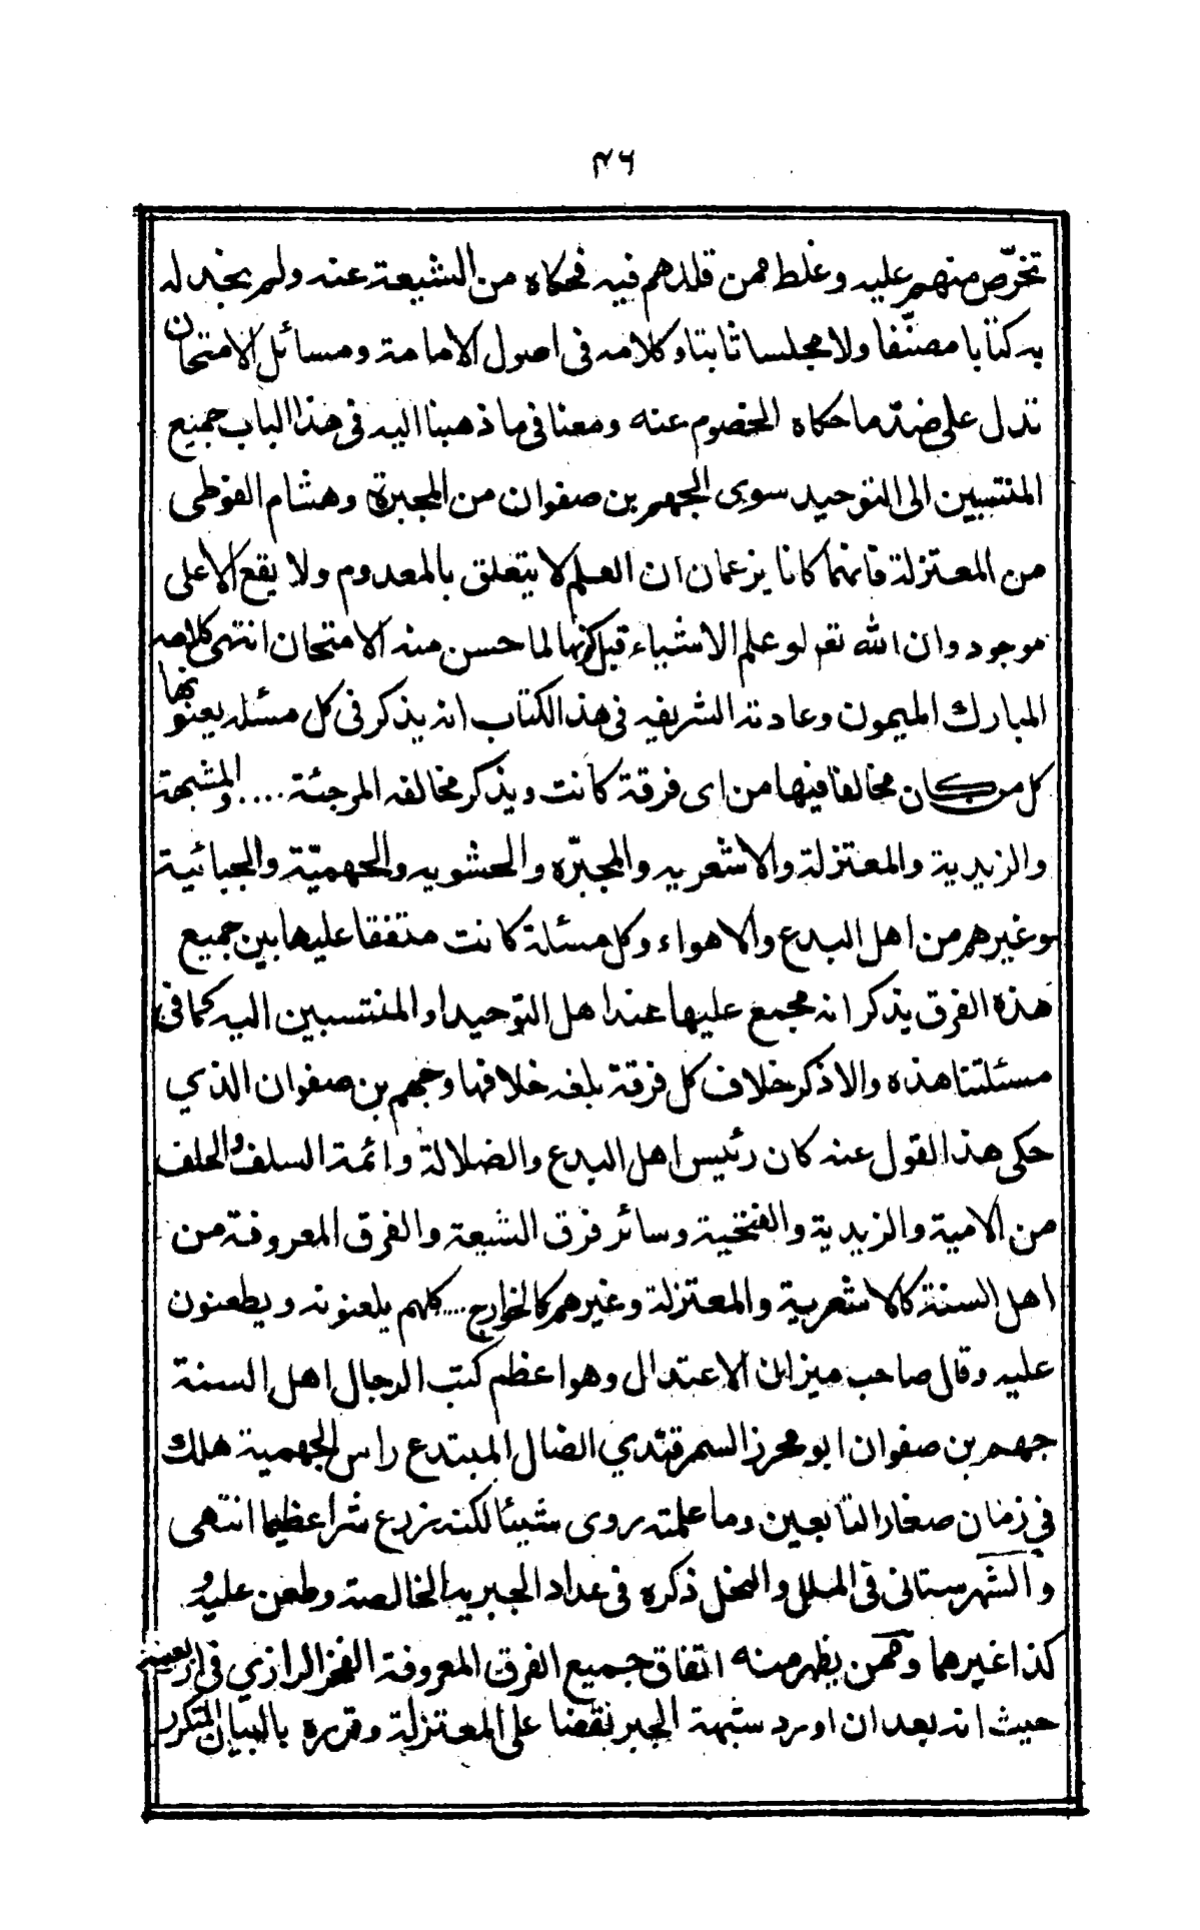 ٤٦
تخرّص منهم عليه وغلط ممن قلدهم فيه فحكاه من الشيعة عنه ولم نجد له
به كتابا مصنّفا ولا مجلسا ثابتا وكلامه فى اصول الامامة ومسائل الامتحان
تدل على ضدّ ما حكاه الخصوم عنه ومعنا فى ما ذهبنا اليه فى هذا الباب جميع
المنتسبين الى التوحيد سوى الجهم بن صفوان من المجبرة وهشام الفوطى
من المعتزلة فانهما كانا يزعمان ان العلم لا يتعلق بالمعدوم ولا يقع الا على
موجود وان الله تعم لو علم الاشياء قبل كونها لما حسن منه الامتحان انتهى كلامه
المبارك الميمون وعادته الشريفه فى هذا الكتاب انه يذكر فى كل مسئله يعنونها
كل من كان مخالفا فيها من اى فرقة كانت ويذكر مخالفه المرجئة .... والمشبهة
والزيدية والمعتزلة والاشعريه والمجبّره والحشويه والجهميّة والجبائية
وغيرهم من اهل البدع والاهواء وكل مسئلة كانت متفقا عليها بين جميع
هذه الفرق يذكر انه مجمع عليها عند اهل التوحيد او المنتسبين اليه كما فى
مسئلتنا هذه والا ذكر خلاف كل فرقة بلغه خلافها وجهم بن صفوان الذي
حكى هذا القول عنه كان رئيس اهل البدع والضلالة وائمة السلف والخلف
من الامية والزيدية والفتخية وسائر فرق الشيعة والفرق المعروفة من
اهل السنة كالاشعرية والمعتزلة وغيرهم كالخوارج ... كلهم يلعنونه ويطعنون
عليه وقال صاحب ميزان الاعتدال وهو اعظم كتب الرجال اهل السنة
جهم بن صفوان ابو محرز السمرقندي الضال المبتدع راس الجهمية هلك
في زمان صغار التابعين وما علمته روى شيئا لكنه زرع شرا عظيما انتهى
والشهرستانى فى الملل والنحل ذكره فى عداد الجبريه الخالصة وطعن عليه و
كذا غيرهما وممن يظهر منه اتفاق جميع الفرق المعروفة الفخر الرازي في اربعينه
حيث انه بعد ان اورد شبهة الجبر نقضا على المعتزلة وقرره بالبيان المتكرر